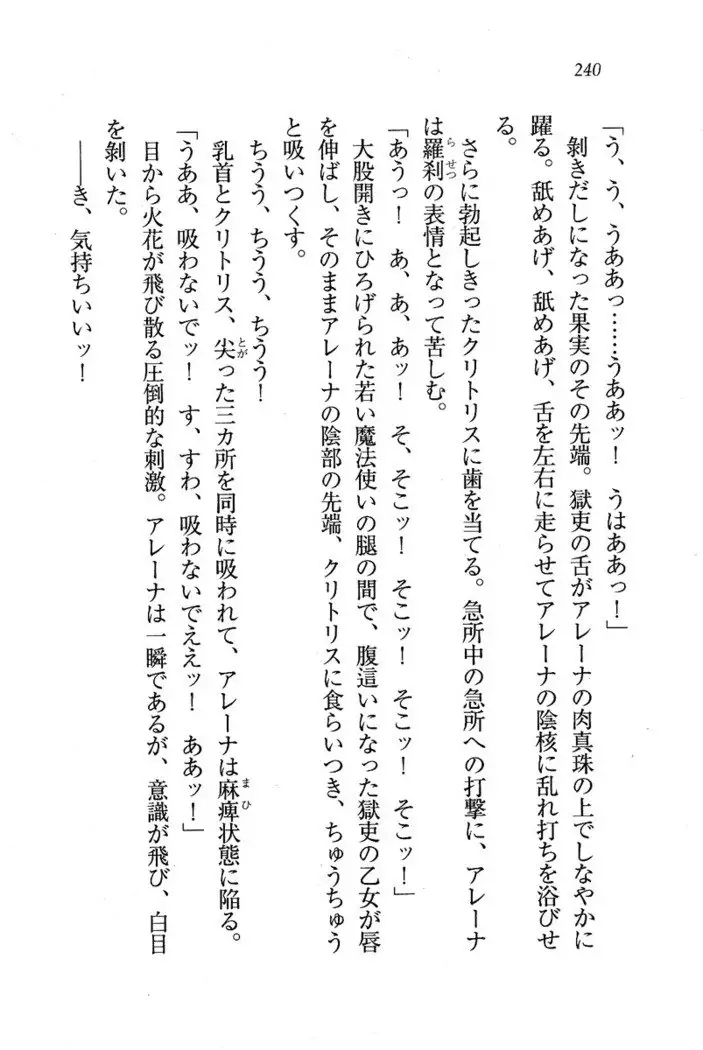 240
「う、う、うああっ……うああッ！　うはああっ！」
剝きだしになった果実のその先端。獄吏の舌がアレーナの肉真珠の上でしなやかに
躍る。舐めあげ、舐めあげ、舌を左右に走らせてアレーナの陰核に乱れ打ちを浴びせ
る。
さらに勃起しきったクリトリスに歯を当てる。急所中の急所への打撃に、アレーナ
は羅刹の表情となって苦しむ。
「あうっ！　あ、あ、あッ！　そ、そこッ！　そこッ！　そこッ！　そこッ！」
大股開きにひろげられた若い魔法使いの腿の間で、腹這いになった獄吏の乙女が唇
を伸ばし、そのままアレーナの陰部の先端、クリトリスに食らいつき、ちゅうちゅう
と吸いつくす。
ちうう、ちうう、ちうう！
乳首とクリトリス、尖った三カ所を同時に吸われて、アレーナは麻痺状態に陥る。
「うああ、吸わないでッ！　す、すわ、吸わないでええッ！　ああッ！」
目から火花が飛び散る圧倒的な刺激。アレーナは一瞬であるが、意識が飛び、白目
を剝いた。
――き、気持ちいいッ！